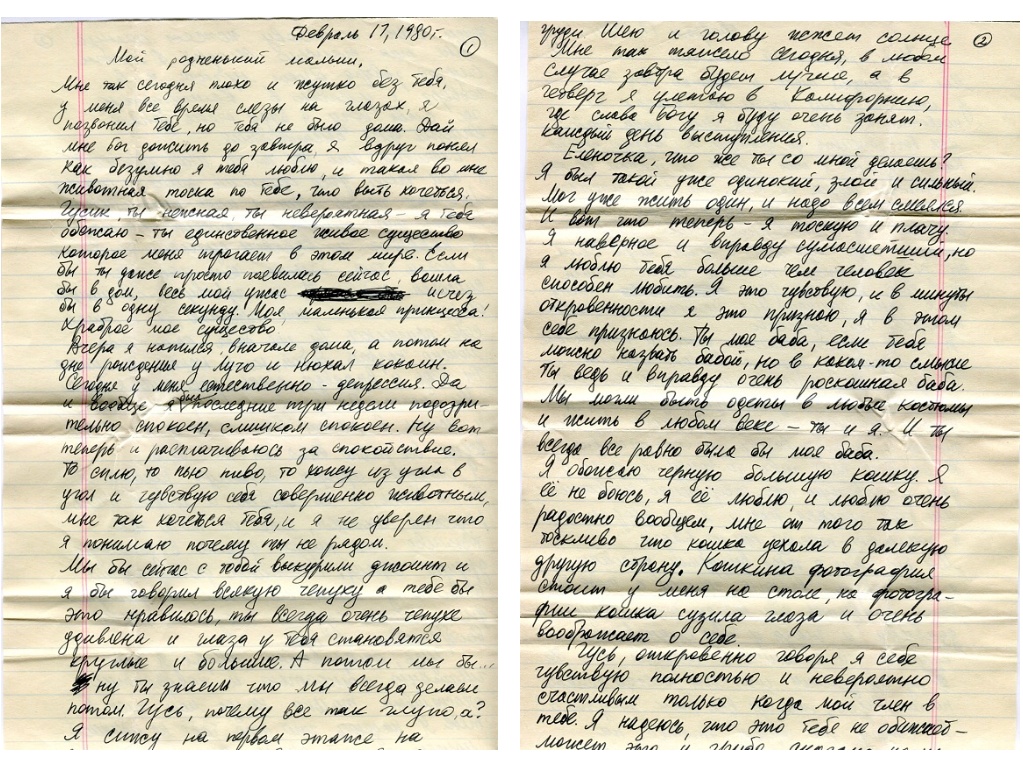 Февраль 17, 1980г.
1
Мой родненький малыш,
Мне так сегодня плохо и жутко без тебя,
у меня все время слезы на глазах, я
позвонил тебе, но тебя не было дома. Дай
мне бог дожить до завтра. Я вдруг понял
как безумно я тебя люблю, и такая во мне
животная тоска по тебе, что выть хочеться.
Гусик, ты нежная, ты невероятная – я тебя
обожаю – ты единственное живое существо
которое меня трогает в этом мире. Если
бы ты даже просто появилась сейчас, вошла
бы в дом, весь мой ужас исчез
бы в одну секунду. Моя маленькая принцесса!
Храброе мое существо,
Вчера я напился, вначале дома, а потом на
дне рождения у Луго и нюхал кокаин.
Сегодня у меня естественно – депрессия. Да
и вообще я был последние три недели подозри-
тельно спокоен, слишком спокоен. Ну вот
теперь и расплачиваюсь за спокойствие.
То сплю, то пью пиво, то хожу из угла в
угол и чувствую себя совершенно животным,
мне так хочеться тебя, и я не уверен что
я понимаю почему ты не рядом.
Мы бы сейчас с тобой выкурили джоинт и
я бы говорил всякую чепуху а тебе бы
это нравилось, ты всегда очень чепухе
удивлена и глаза у тебя становятся
круглые и большие. А потом мы бы...
ну ты знаешь что мы всегда делаем
потом. Гусь, почему все так глупо, а?
Я сижу на первом этаже на
2
груди. Шею и голову жжет солнце
Мне так тяжело сегодня, в любом
случае завтра будет лучше, а в
четверг я улетаю в Калифорнию,
где слава богу я буду очень занят.
Каждый день выступления.
Еленочка, что же ты со мной делаешь?
Я был такой уже одинокий, злой и сильный.
Мог уже жить один, и надо всем смеялся.
И вот что теперь – я тоскую и плачу.
Я наверное и вправду сумасшедший, но
я люблю тебя больше чем человек
способен любить. Я это чувствую, и в минуты
откровенности я это признаю, я в этом
себе признаюсь. Ты моя баба, если тебя
можно назвать бабой, но в каком-то смысле
Ты ведь и вправду очень роскошная баба.
Мы могли быть одеты в любые костюмы
и жить в любом веке – ты и я. И ты
всегда все равно была бы моя баба.
Я обожаю черную большую кошку. Я
её не боюсь, я её люблю, и люблю очень
радостно вообщем, мне от того так
тоскливо что кошка уехала в далекую
другую страну. Кошкина фотография
стоит у меня на столе, на фотогра-
фии кошка сузила глаза и очень
воображает о себе.
Гусь, откровенно говоря я себя
чувствую полностью и невероятно
счастливым только когда мой член в
тебе. Я надеюсь, что это тебе не обижает –
может это и грубо